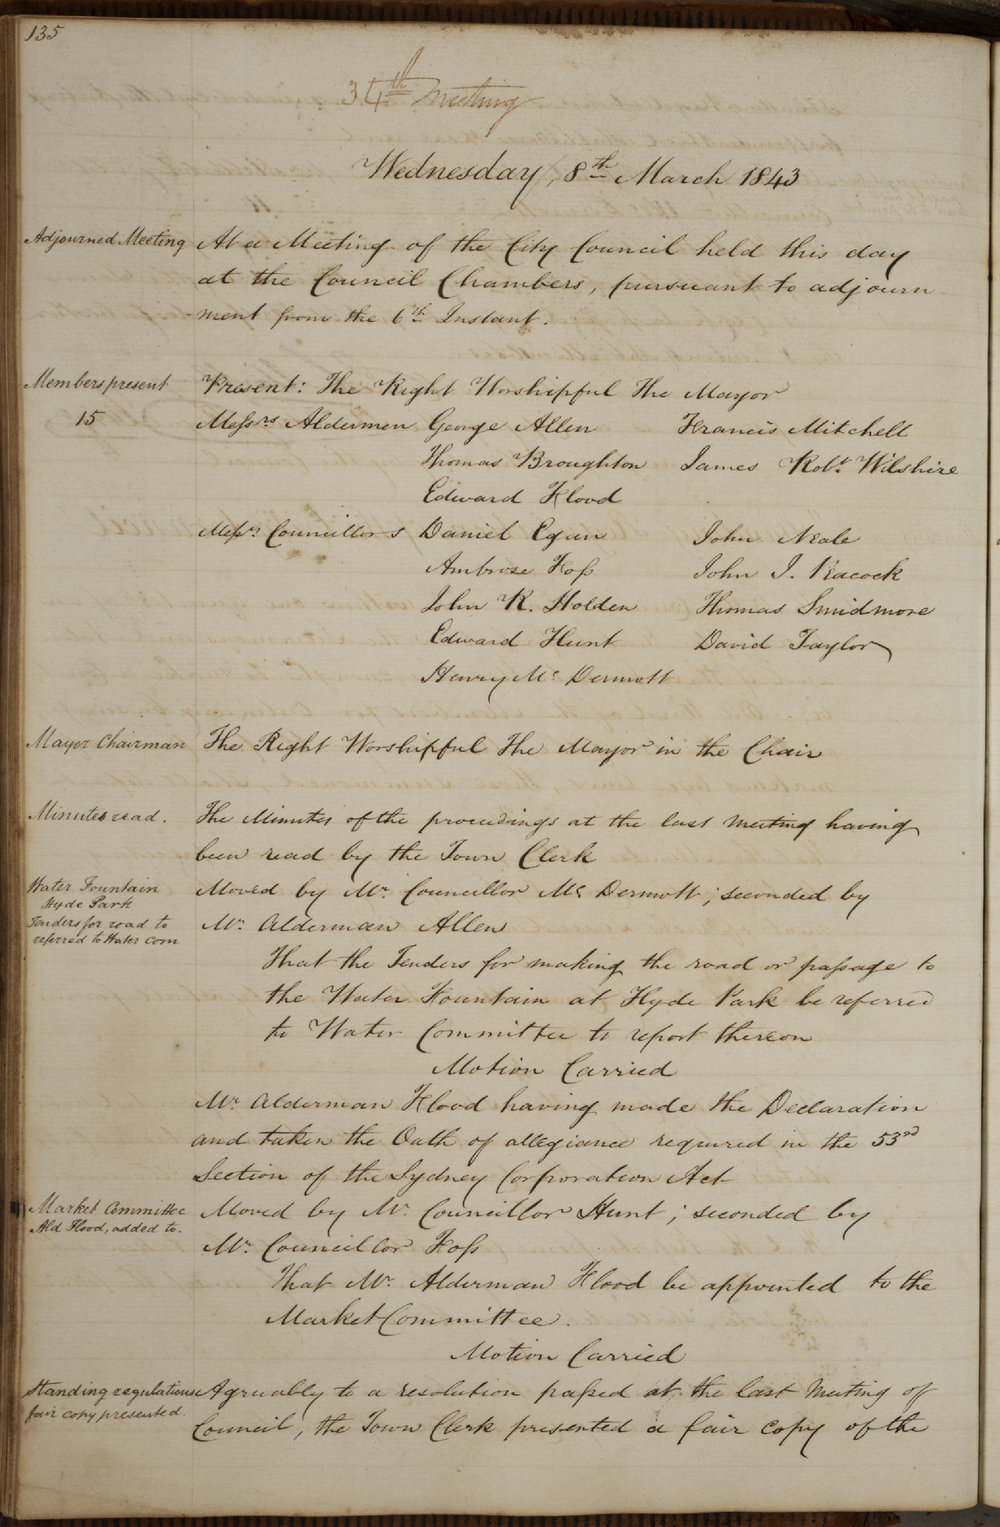 135
34th Meeting
Wednesday, 8th March 1843
Adjourned Meeting
At a Meeting of the City Council held this day
at the Council Chambers, pursuant to adjourn-
-ment from the 6th Instant.
Members present
15
Present: The Right Worshipful The Mayor
Messrs Aldermen George Allen Francis Mitchell
Thomas Broughton James Robt Wilshire
Edward Flood
Messrs Councillors Daniel Egan John Neale
Ambrose Foss John I. Peacock
John R. Holden Thomas Smidmore
Edward Hunt David Taylor
Henry Mc Dermott
Mayor Chairman
The Right Worshipful The Mayor in the Chair
Minutes read.
The Minutes of the proceedings at the last meeting having
been read by the Town Clerk
Water Fountain
Hyde Park
Tenders for road to
referred to Water Com
Moved by Mr. Councillor Mc Dermott; seconded by
Mr. Alderman Allen
That the Tenders for making the road or passage to
the Water Fountain at Hyde Park be referred
to Water Committee to report thereon
Motion Carried
Mr. Alderman Flood having made the Declaration
and taken the Oath of allegiance required in the 53rd
Section of the Sydney Corporation Act
Market Committee
Ald Flood, added to.
Moved by Mr. Councillor Hunt; seconded by
Mr. Councillor Foss
That Mr. Alderman Flood be appointed to the
Market Committee.
Motion Carried
Standing regulations
fair copy presented.
Agreeably to a resolution passed at the last Meeting of
Council, the Town Clerk presented a fair copy of the